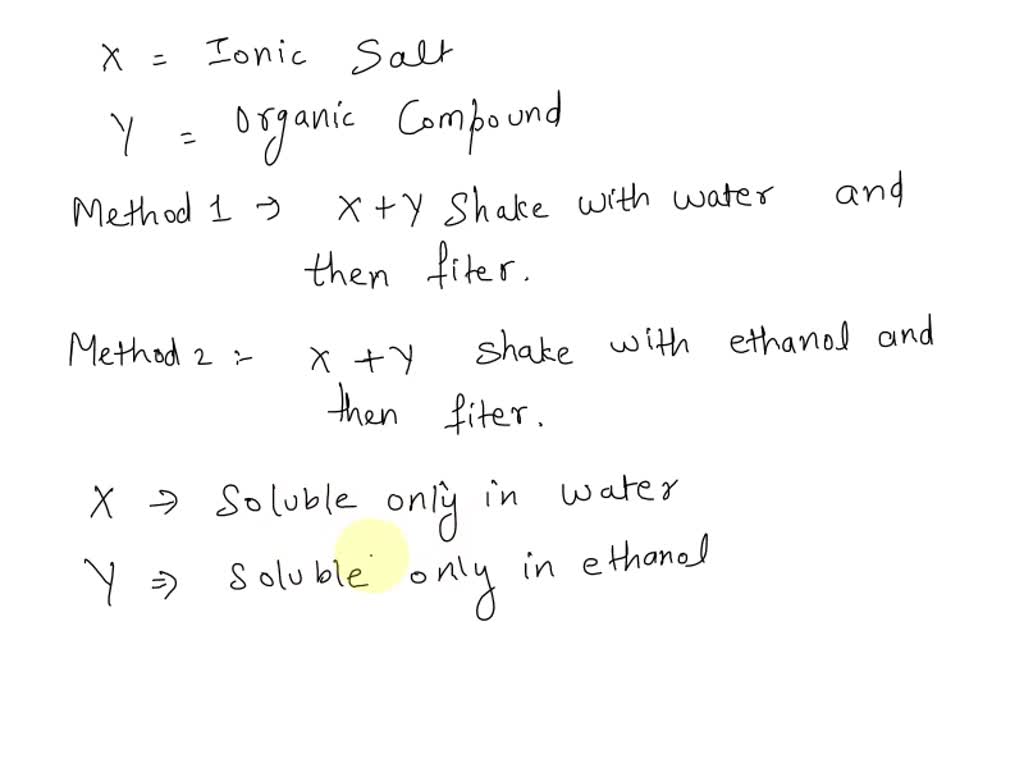 X = Ionic Salt
Y = Organic Compound
Method 1 → X + Y Shake with water and
then fiter.
Method 2 :- X + Y shake with ethanol and
then fiter.
X ⇒ Soluble only in water
Y ⇒ Soluble only in ethanol